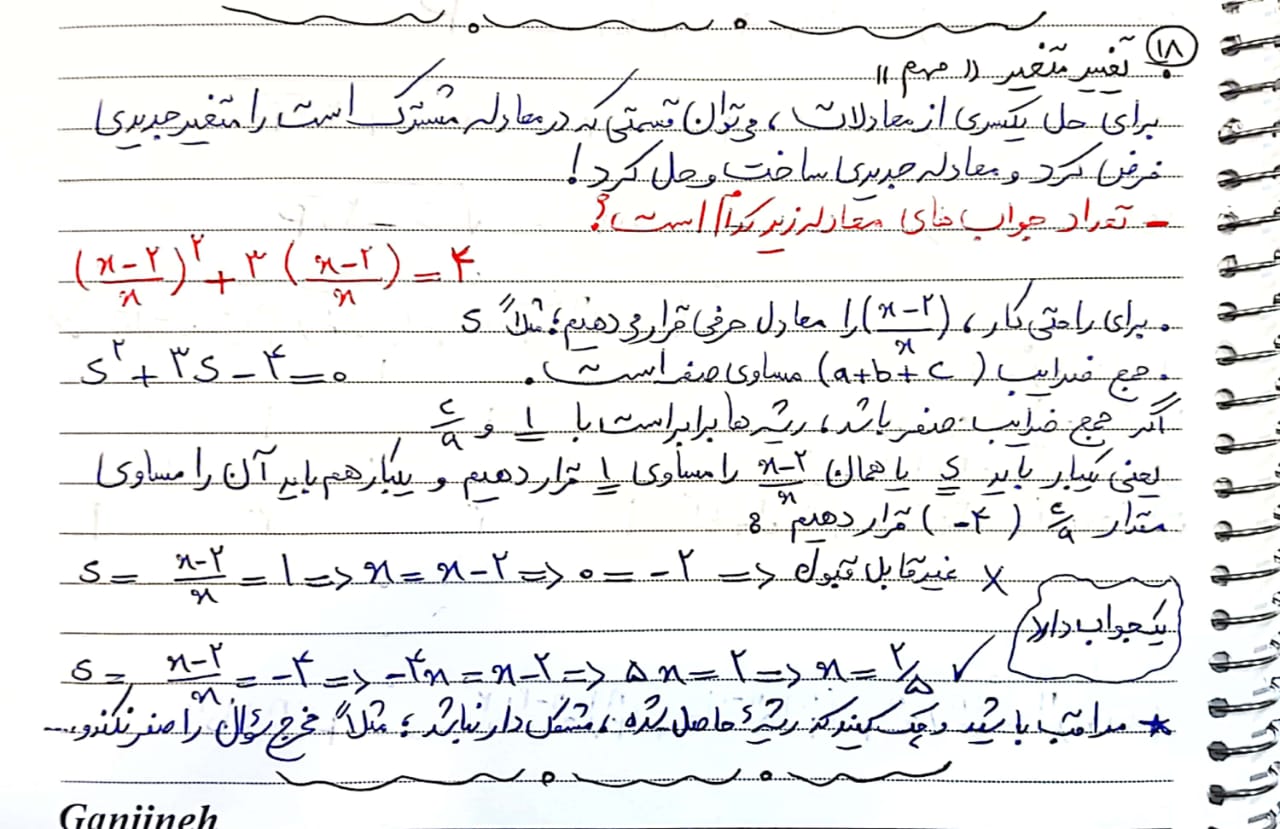 ۱۸ تغییر متغیر «مهم»
برای حل یکسری از معادلات، می‌توان قسمتی که در معادله مشترک است را متغیر جدیدی
فرض کرد و معادله جدیدی ساخت و حل کرد!
- تعداد جواب های معادله زیر کدام است؟
(x-۲/x)^۲ + ۳(x-۲/x) = ۴
. برای راحتی کار، (x-۲/x) را معادل حرفی قرار می دهیم؛ مثلاً s
. جمع ضرایب (a+b+c) مساوی صفر است. s^۲+۳s-۴=۰
اگر جمع ضرایب صفر باشد، ریشه ها برابر است با ۱ و c/a
یعنی یکبار باید s یا همان x-۲/x را مساوی ۱ قرار دهیم و یکبار هم باید آن را مساوی
مقدار c/a (-۴) قرار دهیم:
s = x-۲/x = ۱ => x = x-۲ => ۰ = -۲ => غیرقابل قبول ×
یک جواب دارد
s = x-۲/x = -۴ => -۴x = x-۲ => ۵x = ۲ => x = ۲/۵ ✓
★ مراقب باشید و چک کنید که ریشهٔ حاصل شده، مشکل دار نباشد؛ مثلاً مخرج سؤال را صفر نکند و...
Ganjineh